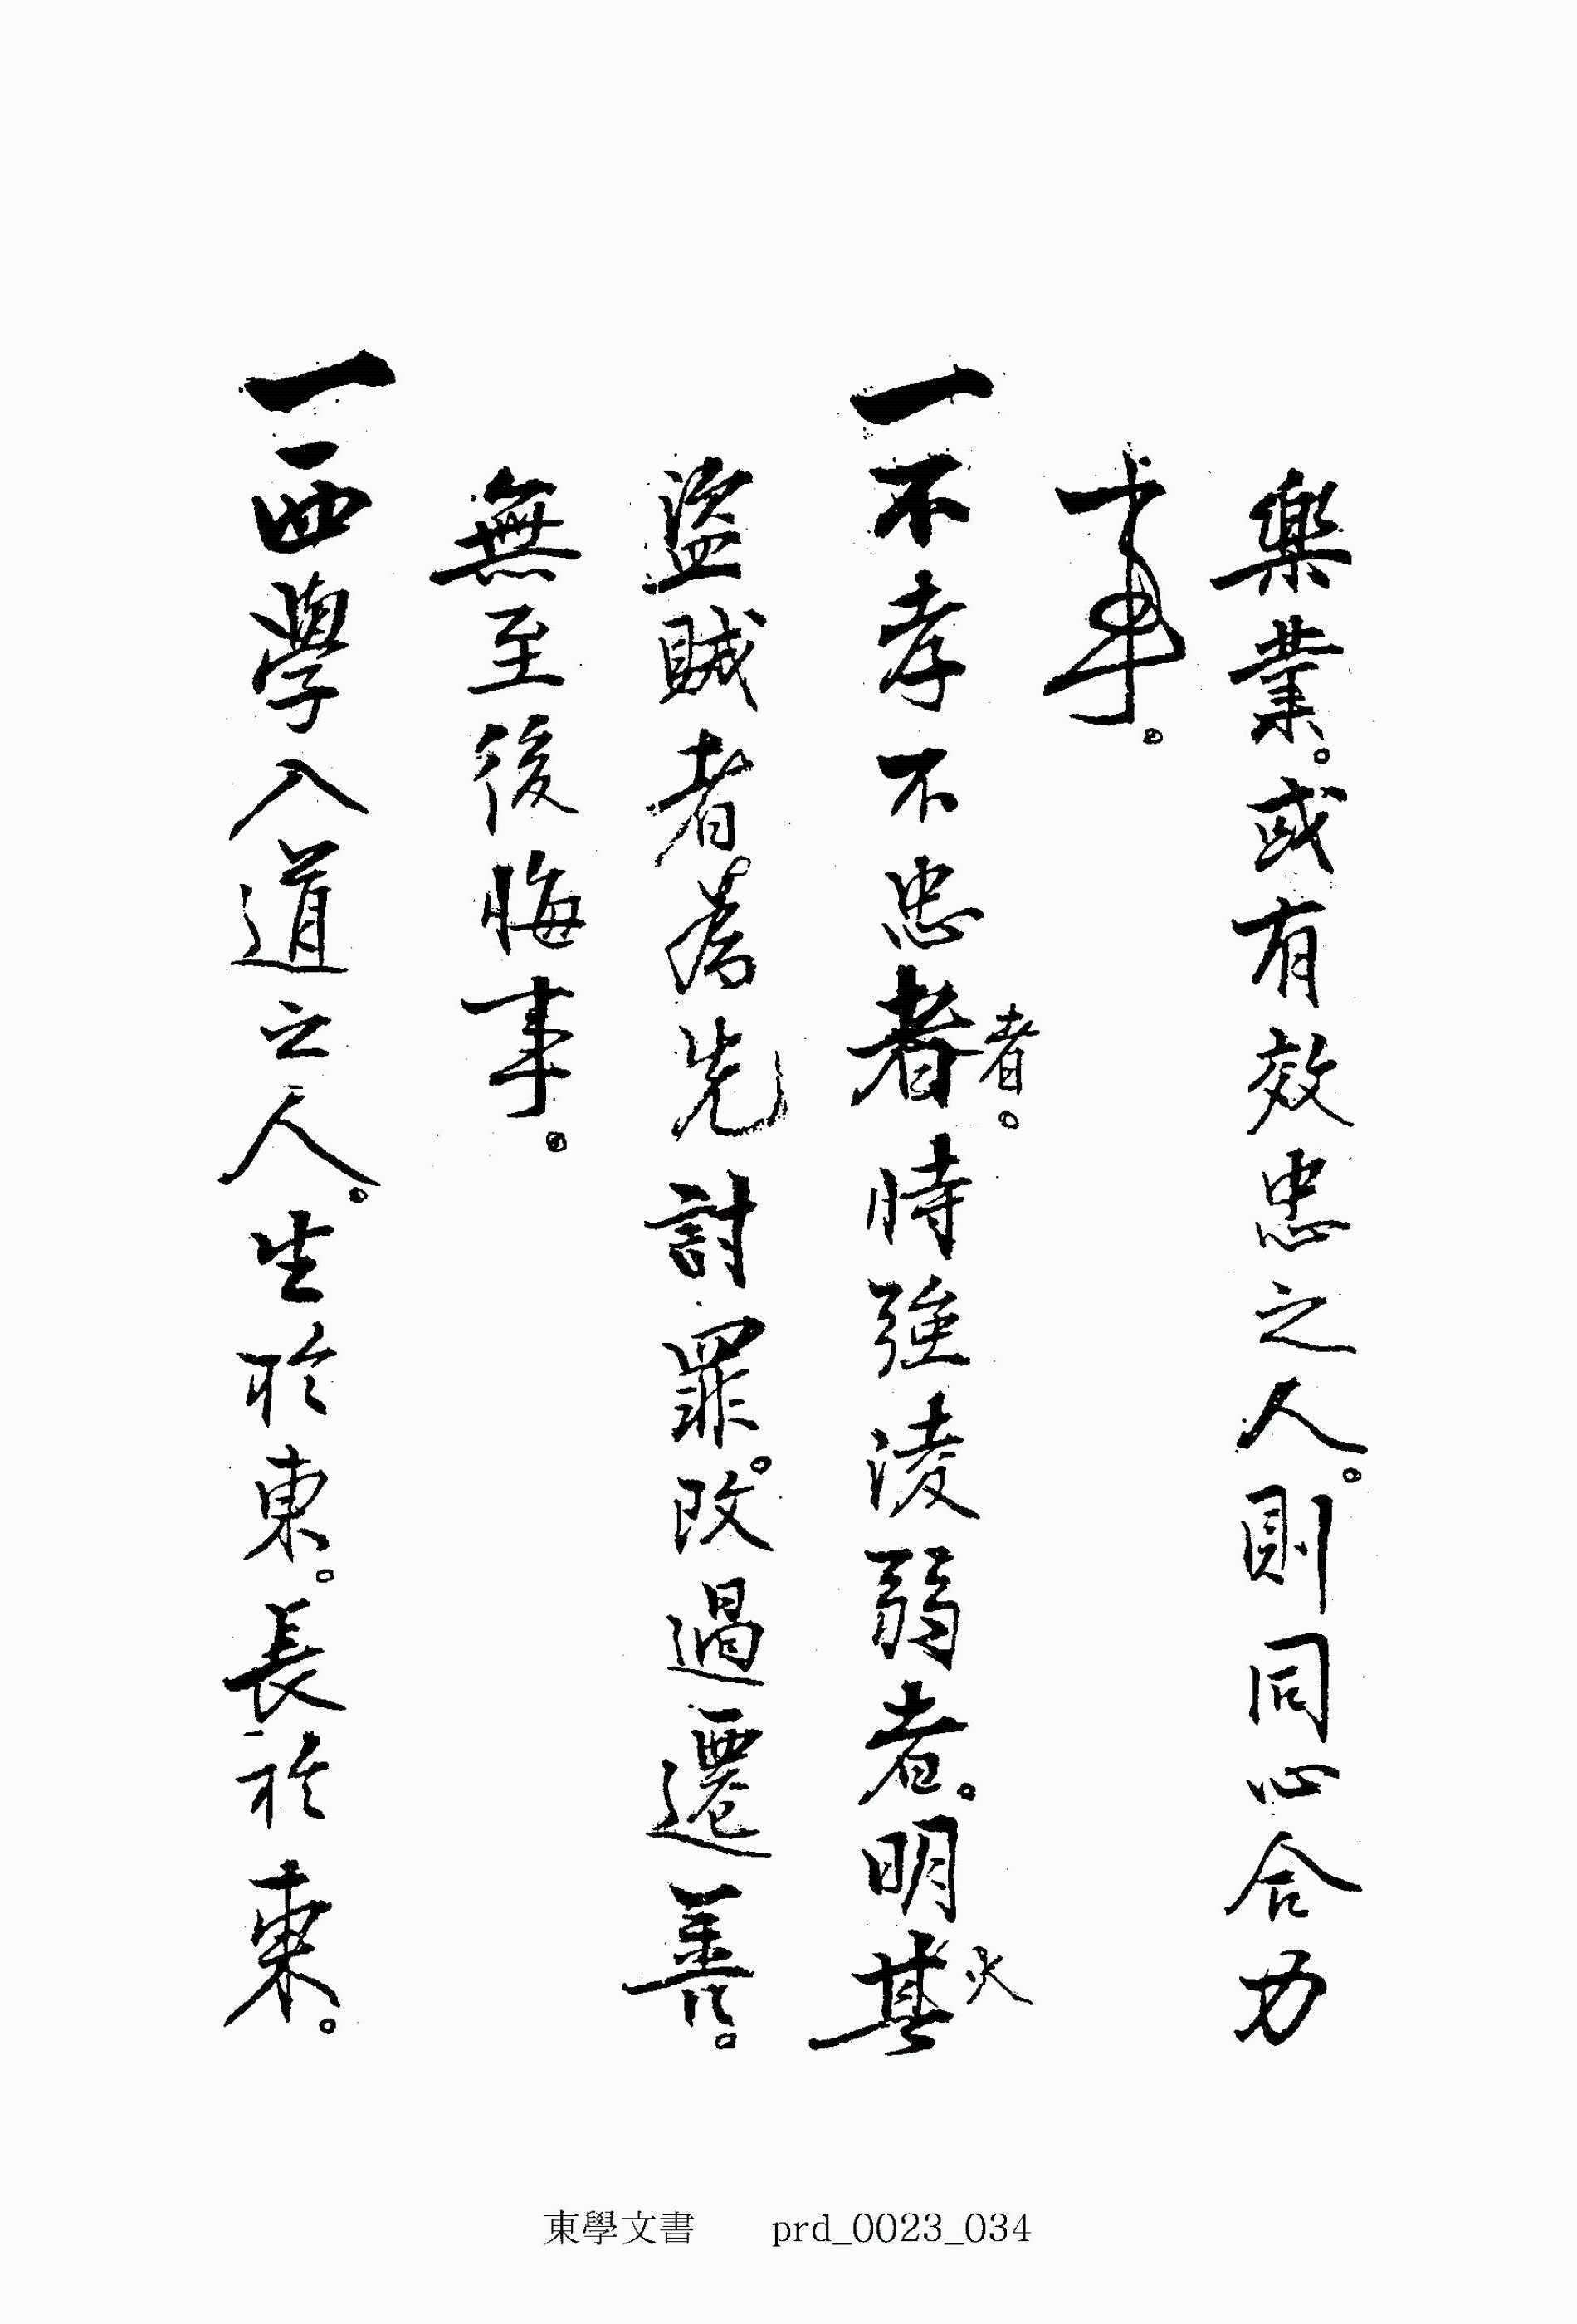 樂業。或有效忠之人。則同心合力
事。
一不孝不忠者者。恃強淩弱者。明其火
盜賊者。先討罪。改過遷善。
無至後悔事。
一西學入道之人。生於東。長於東。
東學文書 prd_0023_034